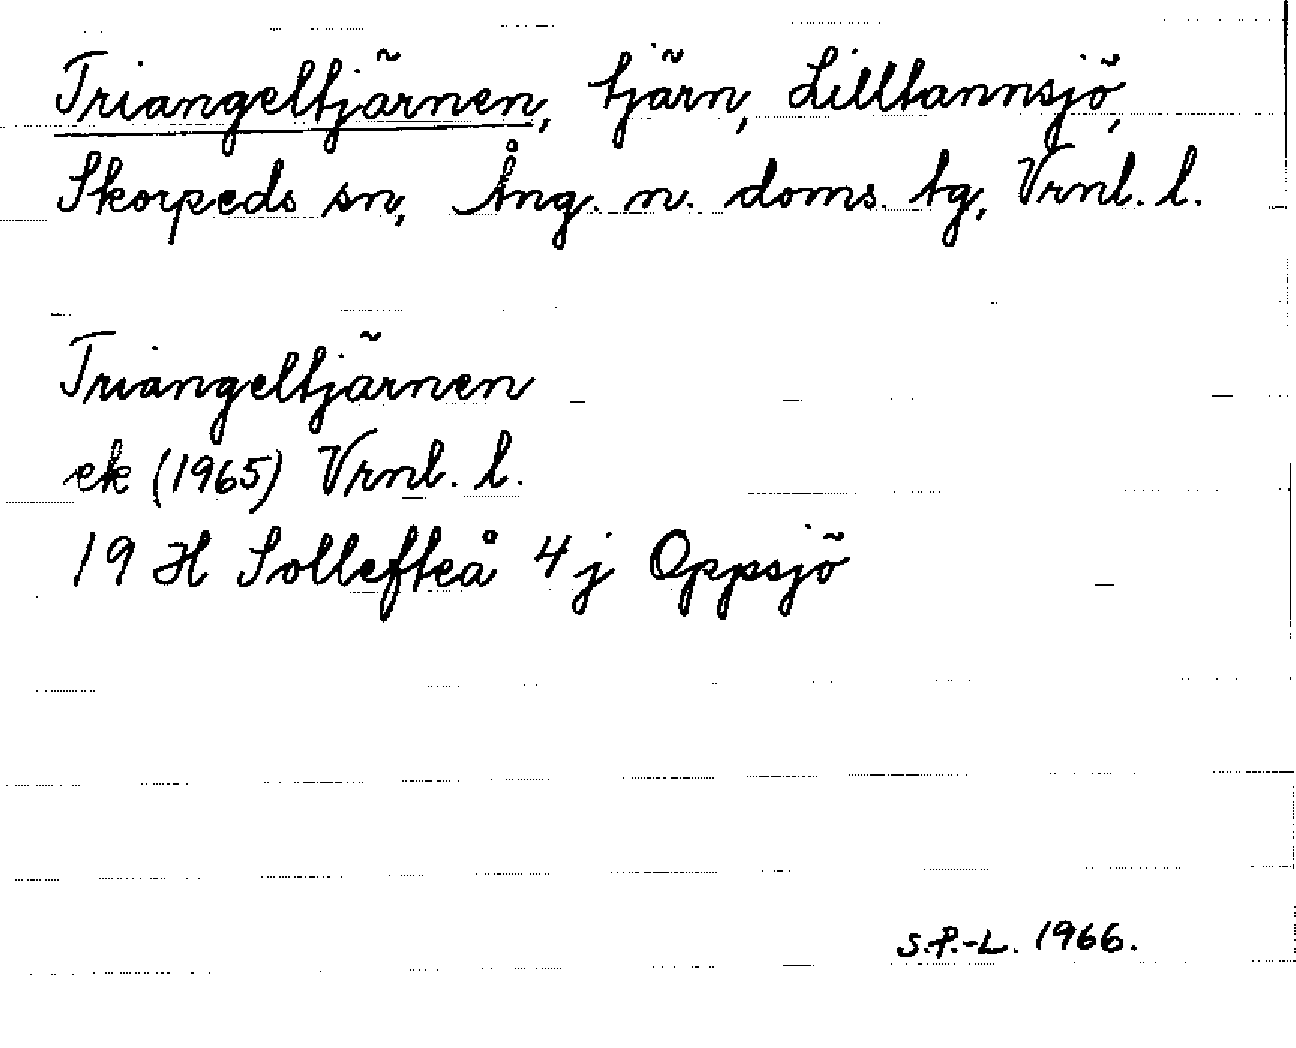 Triangeltjärnen, tjärn, Lilltannsjö,
Skorpeds sn, Ång. n. doms. tg, Vrnl. l.
Triangeltjärnen
ek (1965) Vrnl. l.
19 H Sollefteå 4 j Oppsjö
S.P.-L. 1966.